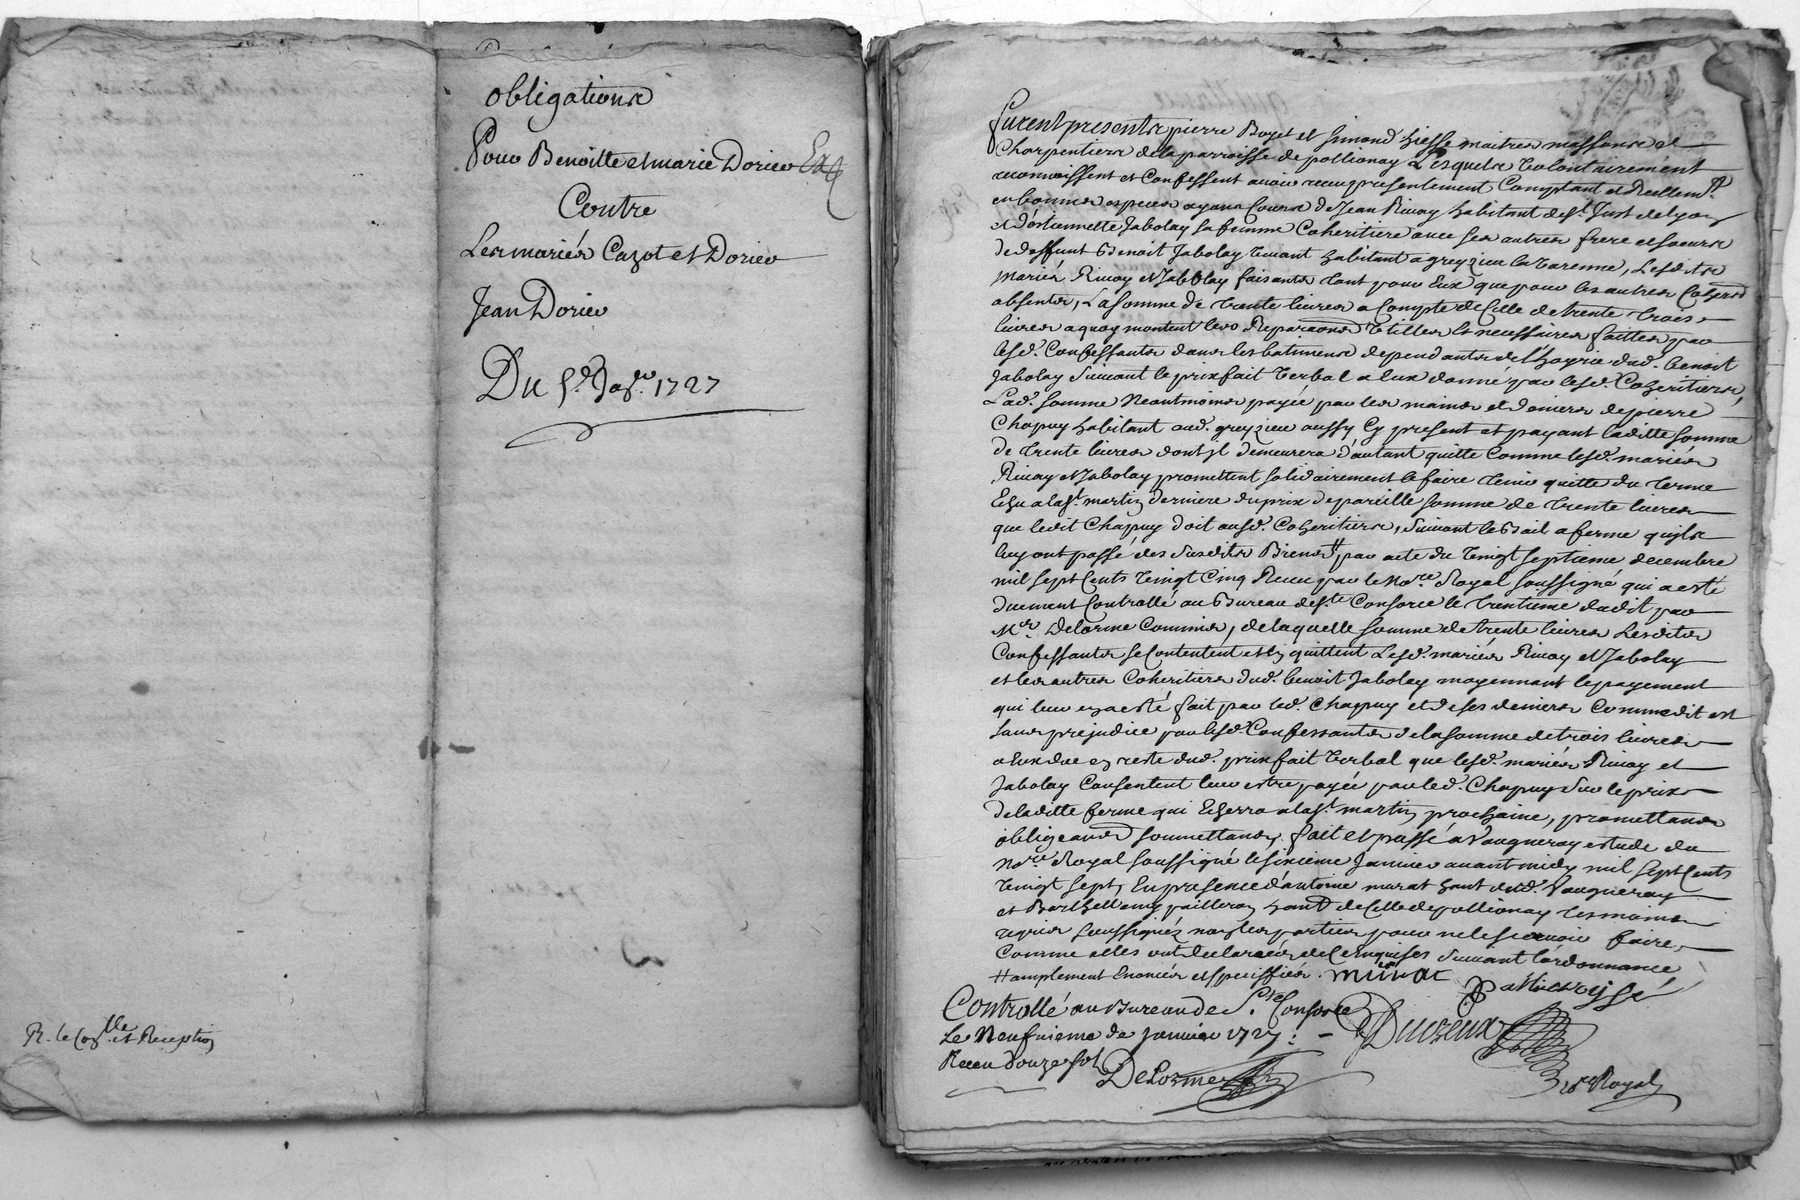 obligations
Pour Benoitte et marie Dorieu Exp
Contre
Les mariés Cazot et Dorieu
Jean Dorieu
Du 5e Jave 1727
R. le Conlle et Reception
furent presents pierre Boyet et Simond hiesse maitres massons et
Charpentiers de la parroisse de pollionay Lesquels volontairement
reconnoissent et Confessent avoir receu presentement Comptant et Reellemt
en bonnes especes ayans Cours de Jean Rivay habitant de St Just de lyon
et d'estiennette Jabolay sa femme Coheritiere avec ses autres frere et soeurs
de deffunt Benoit Jabolay vivant habitant a greyzieu la varenne, Lesdits
mariés Rivay et Jabolay faisants tant pour Eux que pour les autres Coherers
absents, La somme de trente livres a Compte de Celle de trente trois
livres a quoy montent les Reparaons utilles et necessaires faittes par
lesd. Confessants dans les batiments dependants de l'hoyrie dud. benoit
Jabolay suivant le prixfait verbal a Eux donné par lesd. Coheritiers,
Lad. somme neantmoins payée par les mains et deniers de pierre
Chapuy habitant aud. greyzieu aussy Cy present et payant laditte somme
de trente livres dont il demeurera d'autant quitte Comme lesd. mariés
Rivay et Jabolay promettent solidairement le faire tenir quitte du terme
Echu a la St martin derniere du prix de pareille somme de trente livres
que ledit Chapuy doit ausd. Coheritiers, suivant le Bail a ferme quils
luy ont passé des susdits Biens # par acte du vingt septieme decembre
mil sept Cents vingt Cinq Receu par le Nore Royal soussigné qui a esté
duement Controllé au Bureau de Ste Consorce le trentieme dudit par
Mr Delorme Commis, de laquelle somme de trente livres lesdits
Confessants se Contentent et en quittent Lesd. mariés Rivay et Jabolay
et les autres Coheritiers dud. benoit Jabolay moyennant le payement
qui leur en a esté fait par led. Chapuy et de ses deniers Comme dit est
sans prejudice par lesd. Confessants de la somme de trois livres
a Eux due en reste dud. prixfait verbal que lesd. mariés Rivay et
Jabolay Consentent leur estre payée par led. Chapuy sur le prix
de laditte ferme qui Echerra a la St martin prochaine, promettans
obligeans soumettans, fait et passé a Vaugneray estude du
Nore Royal soussigné le sixieme Janvier avant midy mil sept Cents
vingt sept, En presence d'antoine murat hant dud. Vaugneray
et Barthellemy pailleron hant de Celle de pollionay tesmoins
requis soussignéz non les parties pour ne le scavoir faire
Comme elles ont declaré de Ce enquises suivant l'ordonnance
# amplement Enoncés et speciffiés. murat
Controllé au Bureau de Ste Consorce
Le Neufvieme de janvier 1727 : - Ducreux
Receu douze sol
DeLorme
nore Royal